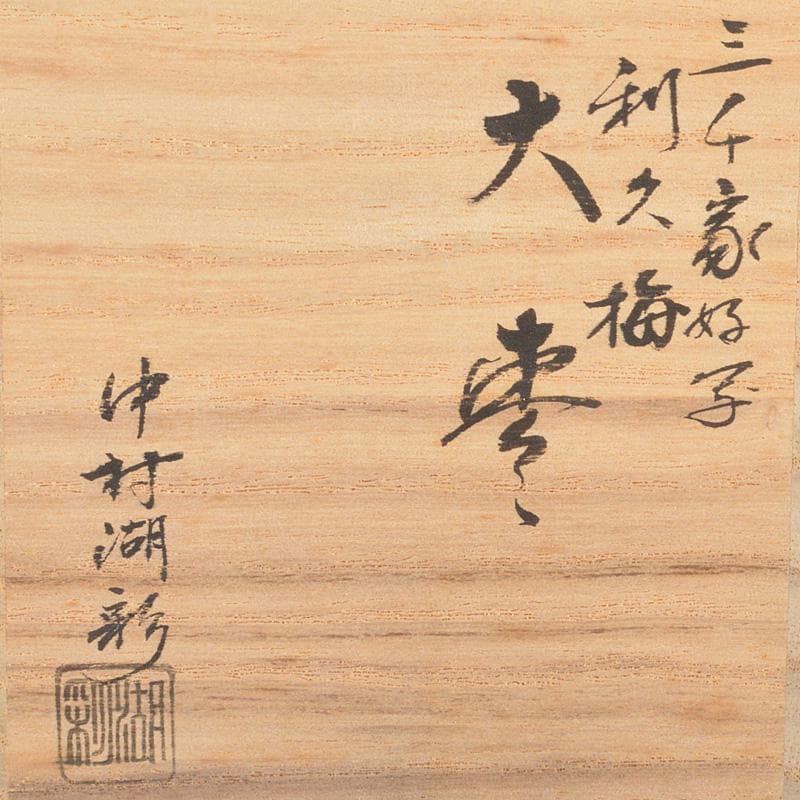 三千家好写
利久梅
大棗
中村湖彩
湖彩